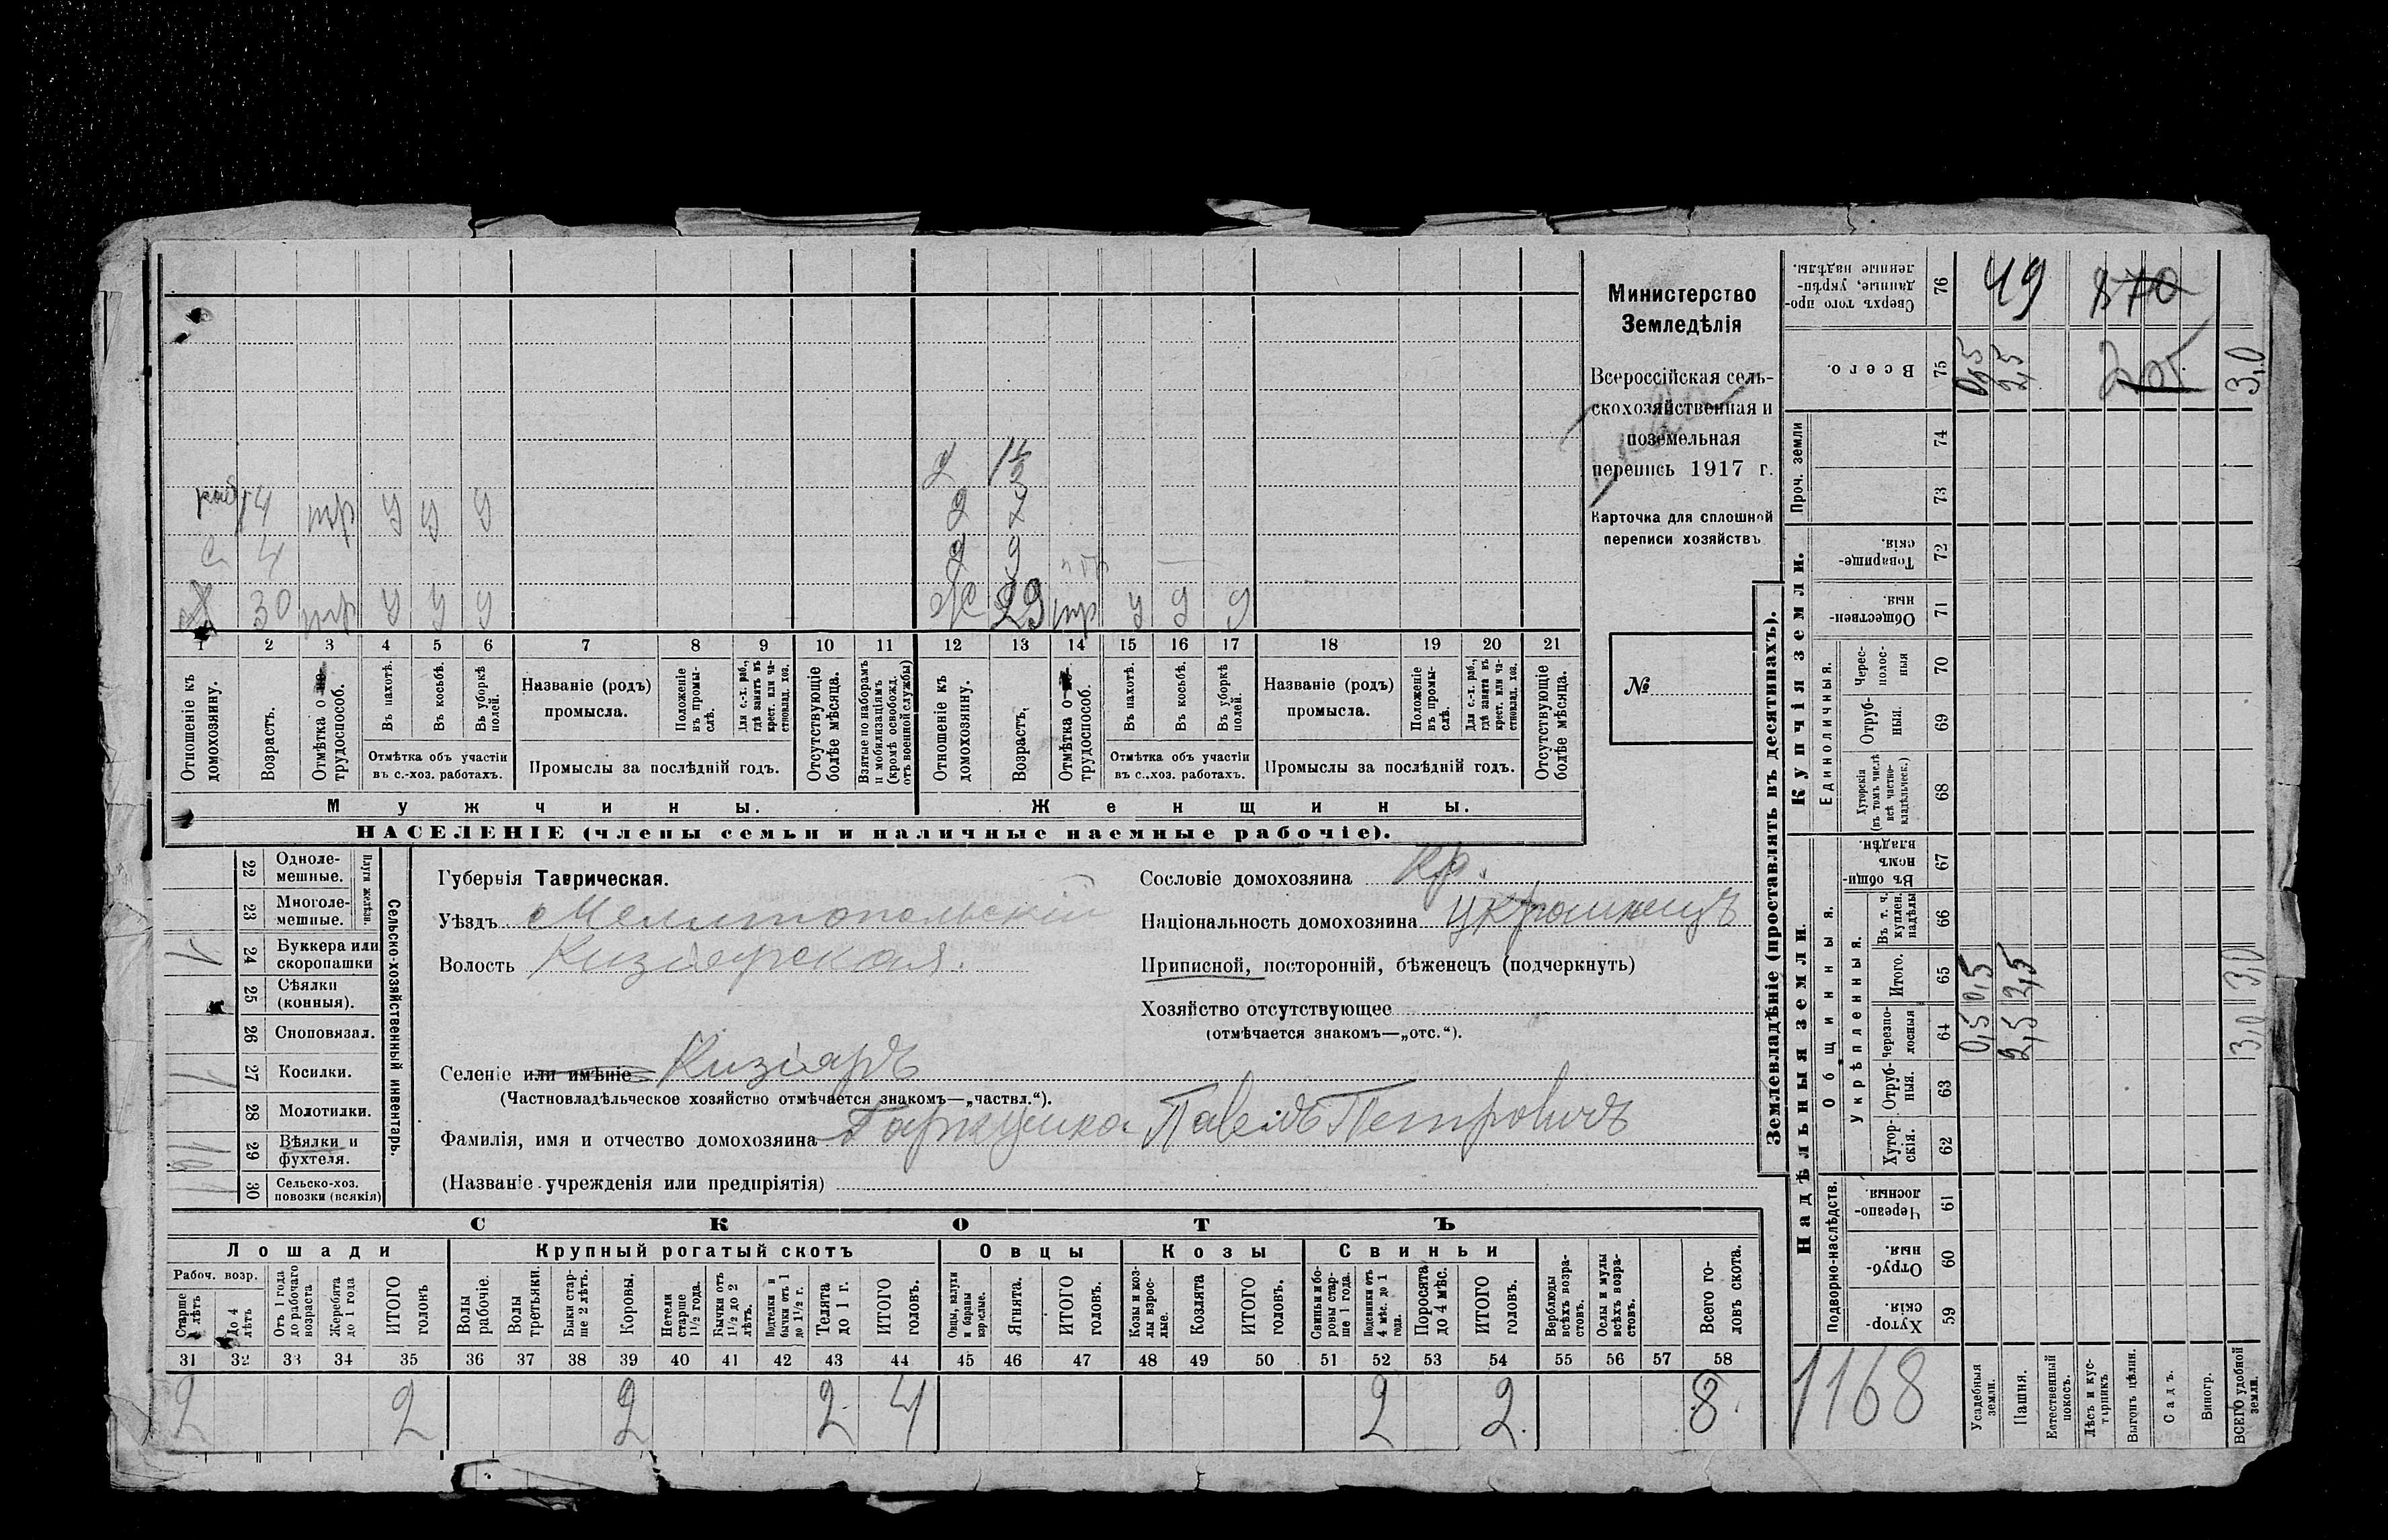 Министерство
Земледѣлія
Всероссійская сель-
скохозяйственная и
поземельная
перепись 1917 г.
Карточка для сплошной
переписи хозяйствъ
№
раб 14 тр у у у
с 4
30 тр у у у
9
Ж 29 тр у у у
1 2 3 4 5 6 7 8 9 10 11 12 13 14 15 16 17 18 19 20 21
Отношеніе къ домохозяину.
Возрастъ.
Отмѣтка о не- трудоспособ.
Въ пахотѣ.
Въ косьбѣ.
Въ уборкѣ полей.
Отмѣтка объ участіи
въ с.-хоз. работахъ.
Названіе (родъ)
промысла.
Положеніе въ промы- слѣ.
Для с.-х. раб., гдѣ занятъ въ крест. или ча- стновлад. хоз.
Промыслы за послѣдній годъ.
Отсутствующіе болѣе мѣсяца.
Взятые по наборамъ и мобилизаціямъ (кромѣ освобожд. отъ военной службы)
Отношеніе къ домохозяину.
Возрастъ.
Отмѣтка о не- трудоспособ.
Въ пахотѣ.
Въ косьбѣ.
Въ уборкѣ полей.
Отмѣтка объ участіи
въ с.-хоз. работахъ.
Названіе (родъ)
промысла.
Положеніе въ промы- слѣ.
Для с.-х. раб., гдѣ занята въ крест. или ча- стновлад. хоз.
Промыслы за послѣдній годъ.
Отсутствующіе болѣе мѣсяца.
Мужчины. Женщины.
НАСЕЛЕНІЕ (члены семьи и наличные наемные рабочіе).
Сельско-хозяйственный инвентарь.
Плуги желѣзн.
22 Одноле- мешные.
23 Многоле- мешные.
24 Буккера или скоропашки 1
25 Сѣялки (конныя).
26 Сноповязал.
27 Косилки. 1
28 Молотилки.
29 Вѣялки и фухтеля. 1
30 Сельско-хоз. повозки (всякія)
Губернія Таврическая.
Уѣздъ Мелитопольскій
Волость Кизіярская.
Селеніе или имѣніе Кизіяръ
(Частновладѣльческое хозяйство отмѣчается знакомъ—„частвл.“).
Фамилія, имя и отчество домохозяина Гаркушка Павелъ Петровичъ
(Названіе учрежденія или предпріятія)
Сословіе домохозяина Кр.
Національность домохозяина Украинецъ
Приписной, посторонній, бѣженецъ (подчеркнуть)
Хозяйство отсутствующее
(отмѣчается знакомъ—„отс.“).
СКОТЪ
Лошади Крупный рогатый скотъ Овцы Козы Свиньи
Рабоч. возр.
Старше 4 лѣтъ
До 4 лѣтъ
Отъ 1 года до рабочаго возраста
Жеребята до 1 года
ИТОГО головъ
Волы рабочіе.
Волы третьяки.
Быки стар- ше 2 лѣтъ.
Коровы.
Нетели старше 1½ года.
Бычки отъ 1½ до 2 лѣтъ.
Подтелки и бычки отъ 1 до 1½ г.
Телята до 1 г.
ИТОГО головъ.
Овцы, валухи и бараны взрослые.
Ягнята.
ИТОГО головъ.
Козы и коз- лы взрос- лые.
Козлята
ИТОГО головъ.
Свиньи и бо- ровы стар- ше 1 года.
Подсвинки отъ 4 мѣс. до 1 года.
Поросята до 4 мѣс.
ИТОГО головъ.
Верблюды всѣхъ возра- стовъ.
Ослы и мулы всѣхъ возра- стовъ.
Всего го- ловъ скота.
31 32 33 34 35 36 37 38 39 40 41 42 43 44 45 46 47 48 49 50 51 52 53 54 55 56 57 58
2 2 2 2 4 2 2. 8.
Землевладѣніе (проставлять въ десятинахъ).
Надѣльныя земли. Купчія земли. Проч. земли
Подворно-наслѣдств.
Общинныя.
Укрѣпленныя.
Единоличныя.
Хутор- скія. 59
Отруб- ныя. 60
Черезпо- лосныя. 61
Хутор- скія. 62
Отруб- ныя. 63
Черезпо- лосныя 64 0,5 2,5 3,0
Итого. 65 0,5 2,5 3,0
Въ т. ч. куплен. надѣлы 66
Въ общин- номъ владѣн. 67
Хуторскія (въ томъ числѣ всѣ частно- владѣльческ.) 68
Отруб- ныя. 69
Черес- полос- ныя 70
Обществен- ныя. 71
Товарище- скія. 72
73
74
Всего. 75 0,5 2,5 3,0
Сверхъ того про- данные, укрѣп- ленные надѣлы. 76 49 870
1168
Усадебныя земли.
Пашня.
Естественный покосъ.
Лѣсъ и кус- тарникъ
Выгонъ цѣлин.
Садъ.
Виногр.
ВСЕГО удобной земли.